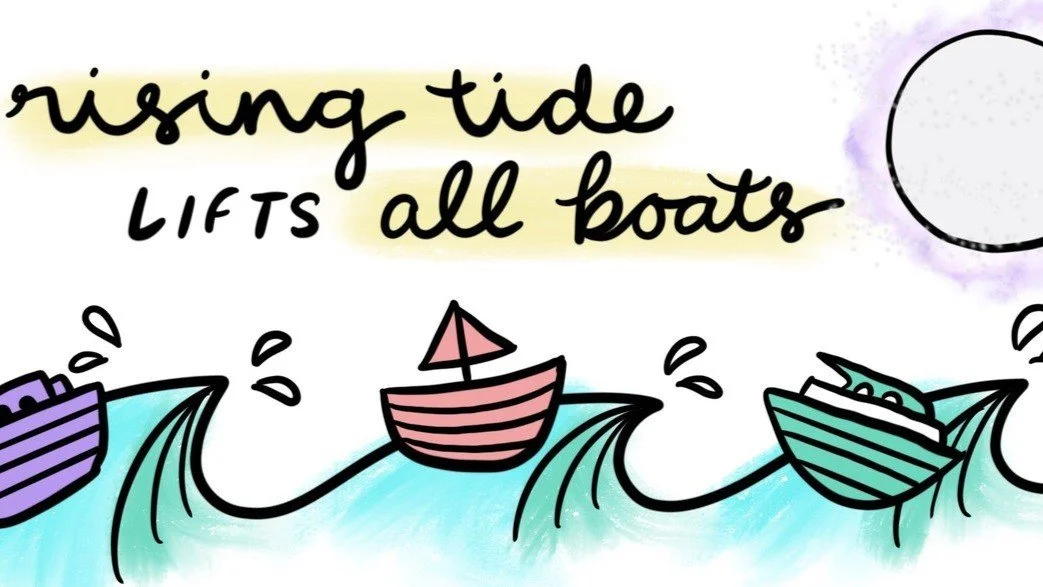 rising tide
LIFTS all boats